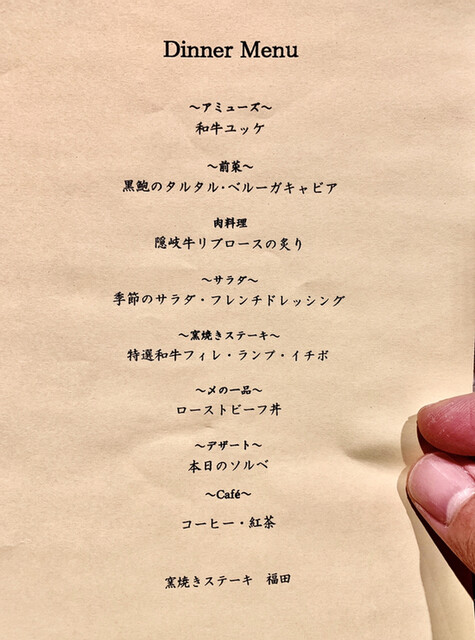 Dinner Menu
～アミューズ～
和牛ユッケ
～前菜～
黒鮑のタルタル・ベルーガキャビア
肉料理
隠岐牛リブロースの炙り
～サラダ～
季節のサラダ・フレンチドレッシング
～窯焼きステーキ～
特選和牛フィレ・ランプ・イチボ
～〆の一品～
ローストビーフ丼
～デザート～
本日のソルベ
～Café～
コーヒー・紅茶
窯焼きステーキ 福田